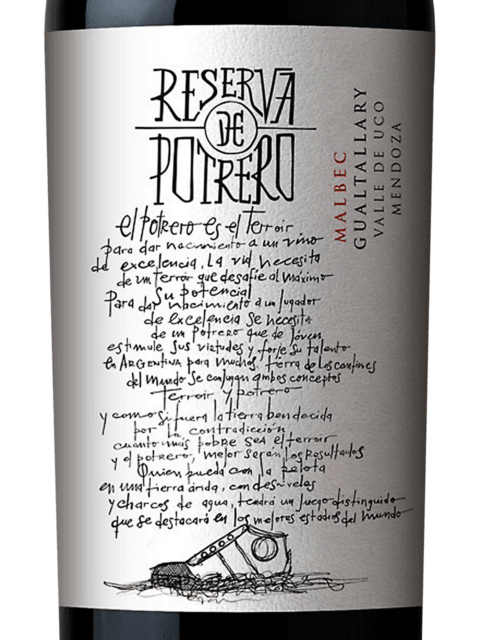 RESERVA
DE
POTRERO
MALBEC
GUALTALLARY
VALLE DE UCO
MENDOZA
el potrero es el terroir
para dar nacimiento a un vino
de excelencia, la vid necesita
de un terroir que desafíe al máximo
su potencial
Para dar nacimiento a un jugador
de excelencia se necesita
de un potrero que de jóven
estimule sus virtudes y forje su talento
en ARGENTINA para muchos, tierra de los confines
del mundo se conjugan ambos conceptos
Terroir y potrero
y como si fuera la tierra bendecida
por la contradicción,
cuanto más pobre sea el terroir
y el potrero, mejor serán los resultados
Quien pueda con la pelota
en una tierra árida, con desniveles
y charcos de agua, tendrá un juego distinguido
que se destacará en los mejores estadios del mundo